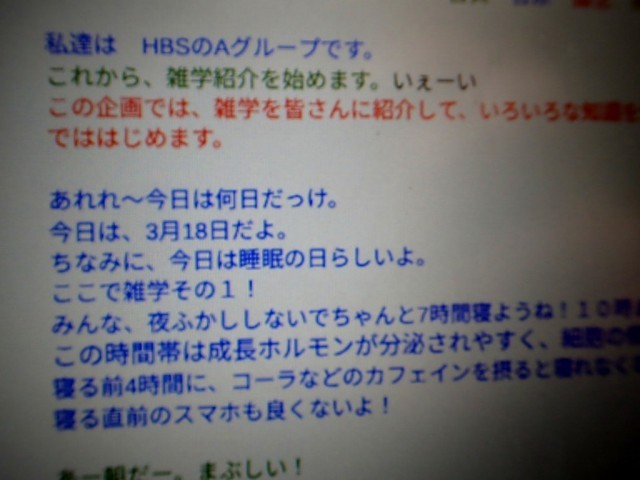 私達は　HBSのAグループです。
これから、雑学紹介を始めます。いぇーい
この企画では、雑学を皆さんに紹介して、いろいろな知識を
でははじめます。
あれれ～今日は何日だっけ。
今日は、3月18日だよ。
ちなみに、今日は睡眠の日らしいよ。
ここで雑学その１！
みんな、夜ふかししないでちゃんと7時間寝ようね！１０時
この時間帯は成長ホルモンが分泌されやすく、細胞の
寝る前4時間に、コーラなどのカフェインを摂ると寝れなく
寝る直前のスマホも良くないよ！
あー朝だー。まぶしい！